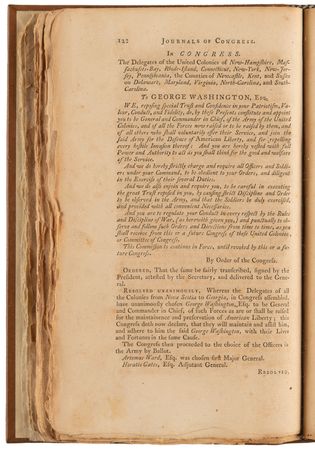 122 JOURNALS OF CONGRESS.
In CONGRESS.
The Delegates of the United Colonies of New-Hampshire, Mas-
sachusetts-Bay, Rhode-Island, Connecticut, New-York, New-Jer-
sey, Pennsylvania, the Counties of Newcastle, Kent, and Sussex
on Delaware, Maryland, Virginia, North-Carolina, and South-
Carolina.
To GEORGE WASHINGTON, Esq.
WE, reposing special Trust and Confidence in your Patriotism, Va-
lour, Conduct, and Fidelity, do, by these Presents constitute and appoint
you to be General and Commander in Chief, of the Army of the United
Colonies, and of all the Forces now raised or to be raised by them, and
of all others who shall voluntarily offer their Service, and join the
said Army for the Defence of American Liberty, and for repelling
every hostile Invasion thereof: And you are hereby vested with full
Power and Authority to act as you shall think for the good and welfare
of the Service.
And we do hereby strictly charge and require all Officers and Soldi-
ers under your Command, to be obedient to your Orders, and diligent
in the Exercise of their several Duties.
And we do also enjoin and require you, to be careful in executing
the great Trust reposed in you, by causing strict Discipline and Order
to be observed in the Army, and that the Soldiers be duly exercised,
and provided with all convenient Necessaries.
And you are to regulate your Conduct in every respect by the Rules
and Discipline of War, (as herewith given you,) and punctually to ob-
serve and follow such Orders and Directions from Time to Time, as you
shall receive from this or a future Congress of these United Colonies,
or Committee of Congress.
This Commission to continue in Force, until revoked by this or a fu-
ture Congress.
By Order of the Congress.
ORDERED, That the same be fairly transcribed, signed by the
President, attested by the Secretary, and delivered to the Gene-
ral.
RESOLVED UNANIMOUSLY, Whereas the Delegates of all
the Colonies from Nova Scotia to Georgia, in Congress assembled,
have unanimously chosen George Washington, Esq. to be General
and Commander in Chief, of such Forces as are or shall be raised
for the maintenance and preservation of American Liberty; this
Congress doth now declare, that they will maintain and assist him,
and adhere to him the said George Washington, with their Lives
and Fortunes in the same Cause.
The Congress then proceeded to the choice of the Officers in
the Army by Ballot.
Artemas Ward, Esq. was chosen first Major General.
Horatio Gates, Esq. Adjutant General.
RESOLVED,